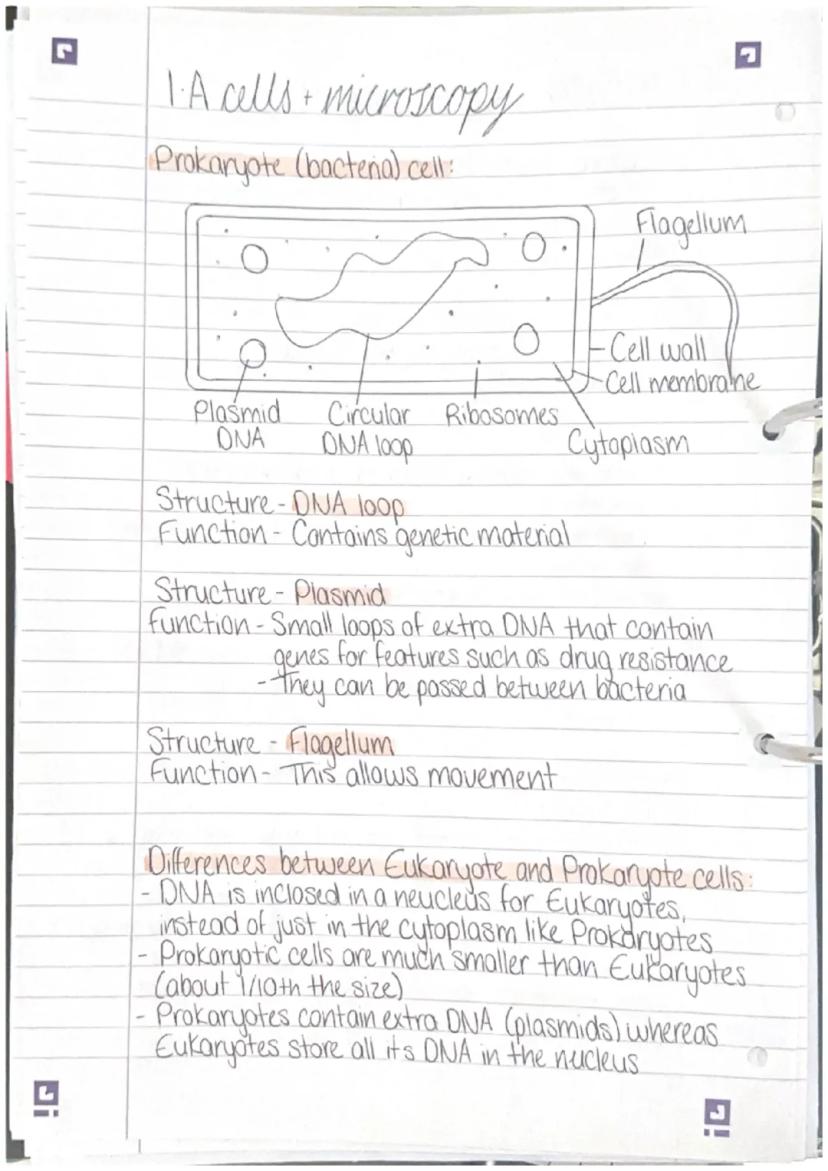 1.A cells + microscopy
Prokaryote (bacteria) cell:
Flagellum
Cell wall
Cell membrane
Plasmid Circular Ribosomes
DNA DNA loop Cytoplasm
Structure - DNA loop
Function - Contains genetic material
Structure - Plasmid
Function - Small loops of extra DNA that contain
genes for features such as drug resistance
- They can be passed between bacteria
Structure - Flagellum
Function - This allows movement
Differences between Eukaryote and Prokaryote cells:
- DNA is inclosed in a neucleus for Eukaryotes,
instead of just in the cytoplasm like Prokaryotes
- Prokaryotic cells are much smaller than Eukaryotes
(about 1/10th the size)
- Prokaryotes contain extra DNA (plasmids) whereas
Eukaryotes store all its DNA in the nucleus